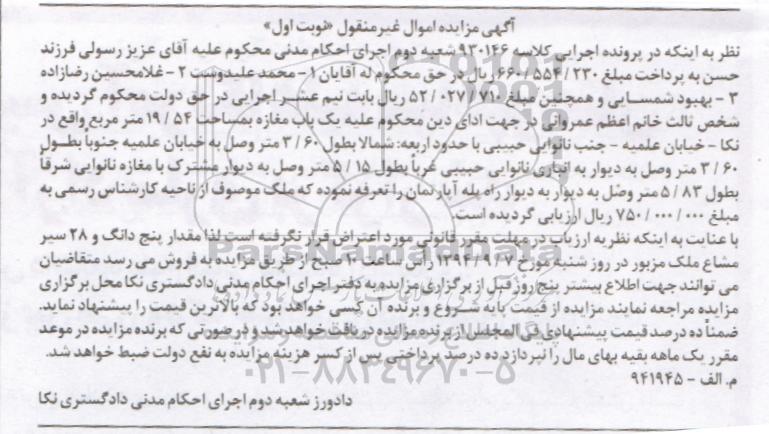 آگهی مزایده اموال غیرمنقول «نوبت اول»
نظر به اینکه در پرونده اجرایی کلاسه ۹۳۰۱۴۶ شعبه دوم اجرای احکام مدنی محکوم علیه آقای عزیز رسولی فرزند
حسن به پرداخت مبلغ ۲۳۰ / ۵۵۴ / ۶۶۰ ریال در حق محکوم له آقایان ۱ - محمد علیدوست ۲ - غلامحسین رضازاده
۳ - بهبود شمسایی و همچنین مبلغ ۷۱۱ / ۰۲۷ / ۵۲ ریال بابت نیم عشر اجرایی در حق دولت محکوم گردیده و
شخص ثالث خانم اعظم عمروانی در جهت ادای دین محکوم علیه یک باب مغازه بمساحت ۵۴ / ۱۹ متر مربع واقع در
نکا - خیابان علمیه - جنب نانوایی حبیبی با حدود اربعه: شمالا بطول ۶۰ / ۳ متر وصل به خیابان علمیه جنوباً بطول
۶۰ / ۳ متر وصل به دیوار به انباری نانوایی حبیبی غرباً بطول ۱۵ / ۵ متر وصل به دیوار مشترک با مغازه نانوایی شرقاً
بطول ۸۳ / ۵ متر وصل به دیوار به دیوار راه پله آپارتمان را تعرفه نموده که ملک موصوف از ناحیه کارشناس رسمی به
مبلغ ۰۰۰ / ۰۰۰ / ۷۵۰ ریال ارزیابی گردیده است.
با عنایت به اینکه نظریه ارزیاب در مهلت مقرر قانونی مورد اعتراض قرار نگرفته است لذا مقدار پنج دانگ و ۲۸ سیر
مشاع ملک مزبور در روز شنبه مورخ ۷ / ۹ / ۱۳۹۴ از ساعت صبح از طریق مزایده به فروش می رسد متقاضیان
می توانند جهت اطلاع بیشتر پنج روز قبل از برگزاری مزایده به دفتر اجرای احکام مدنی دادگستری نکا محل برگزاری
مزایده مراجعه نمایند مزایده از قیمت پایه شروع و برنده آن کسی خواهد بود که بالاترین قیمت را پیشنهاد نماید.
ضمناً ده درصد قیمت پیشنهادی فی المجلس از برنده مزایده دریافت خواهد شد و در صورتی که برنده مزایده در موعد
مقرر یک ماهه بقیه بهای مال را نپردازد ده درصد پرداختی پس از کسر هزینه مزایده به نفع دولت ضبط خواهد شد.
م. الف - ۹۴۱۹۴۵
دادورز شعبه دوم اجرای احکام مدنی دادگستری نکا
ParsNamadData
۰۲۱-۸۸۳۴۹۶۷۰-۵